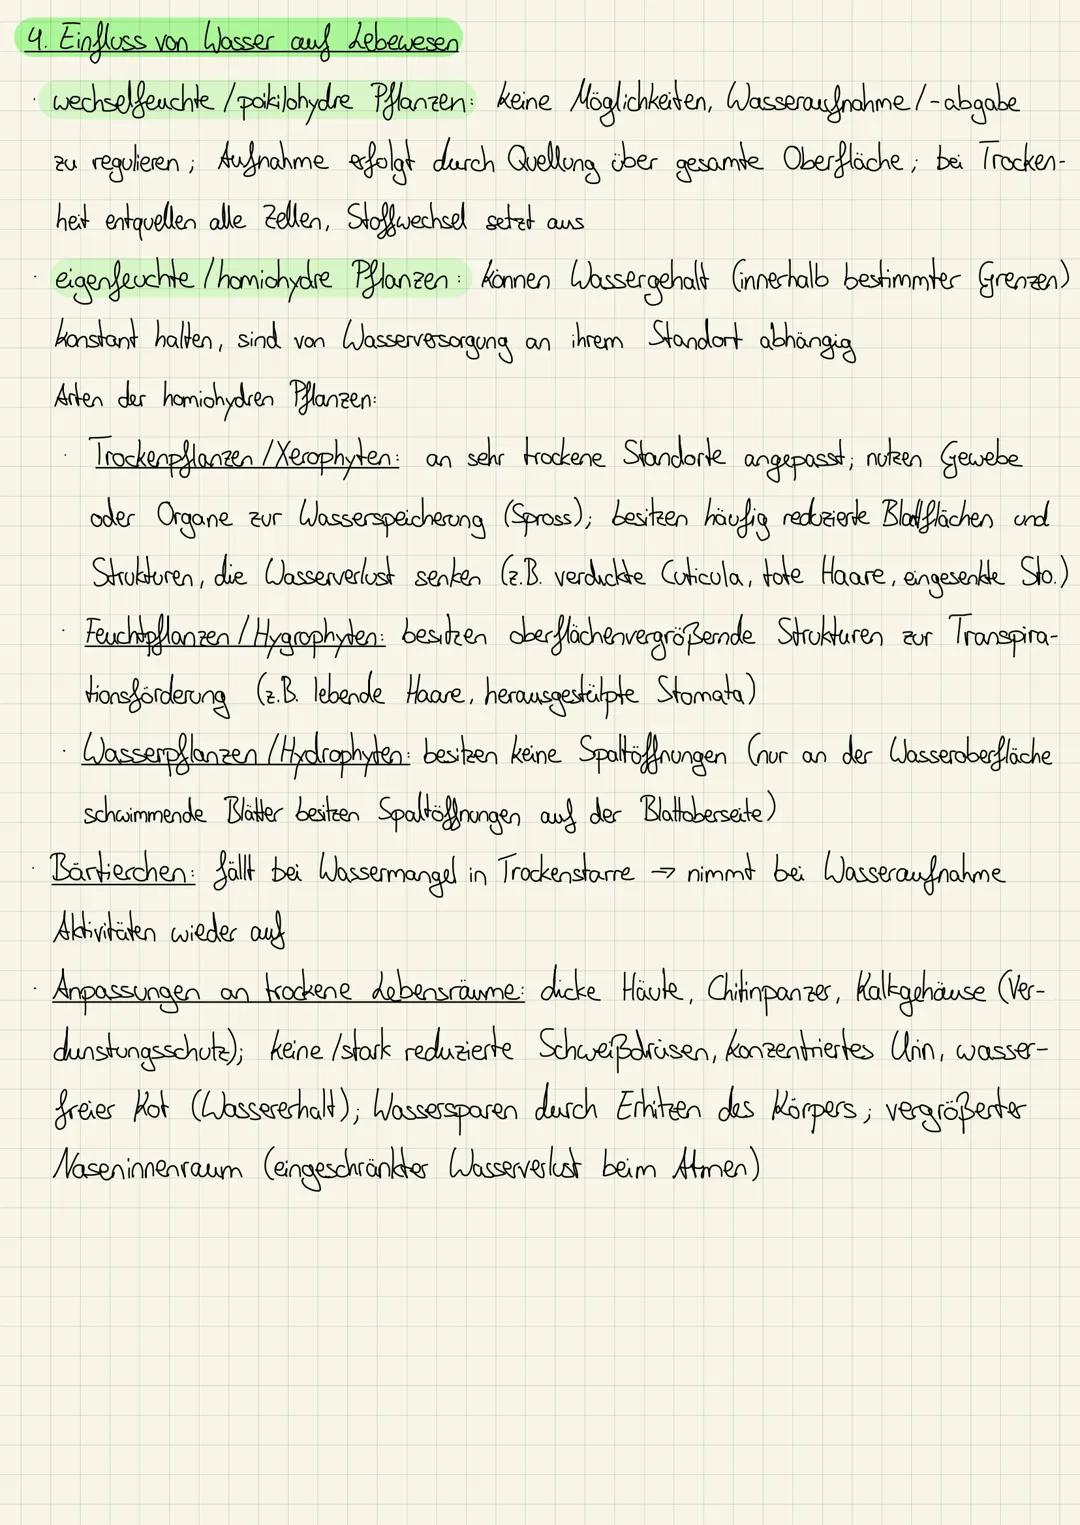 4. Einfluss von Wasser auf Lebewesen
· wechselfeuchte / poikilohydre Pflanzen: keine Möglichkeiten, Wasseraufnahme / -abgabe
zu regulieren; Aufnahme erfolgt durch Quellung über gesamte Oberfläche; bei Trocken-
heit entquellen alle Zellen, Stoffwechsel setzt aus
· eigenfeuchte / homiohydre Pflanzen: können Wassergehalt (innerhalb bestimmter Grenzen)
konstant halten, sind von Wasserversorgung an ihrem Standort abhängig
Arten der homiohydren Pflanzen:
· Trockenpflanzen / Xerophyten: an sehr trockene Standorte angepasst; nutzen Gewebe
oder Organe zur Wasserspeicherung (Spross); besitzen häufig reduzierte Blattflächen und
Strukturen, die Wasserverlust senken (z.B. verdickte Cuticula, tote Haare, eingesenkte Sto.)
· Feuchtpflanzen / Hygrophyten: besitzen oberflächenvergrößernde Strukturen zur Transpira-
tionsförderung (z.B. lebende Haare, herausgestülpte Stomata)
· Wasserpflanzen / Hydrophyten: besitzen keine Spaltöffnungen (nur an der Wasseroberfläche
schwimmende Blätter besitzen Spaltöffnungen auf der Blattoberseite)
· Bärtierchen: fällt bei Wassermangel in Trockenstarre → nimmt bei Wasseraufnahme
Aktivitäten wieder auf
· Anpassungen an trockene Lebensräume: dicke Häute, Chitinpanzer, Kalkgehäuse (Ver-
dunstungsschutz); keine / stark reduzierte Schweißdrüsen, konzentriertes Urin, wasser-
freier Kot (Wassererhalt); Wassersparen durch Erhitzen des Körpers; vergrößerter
Naseninnenraum (eingeschränkter Wasserverlust beim Atmen)